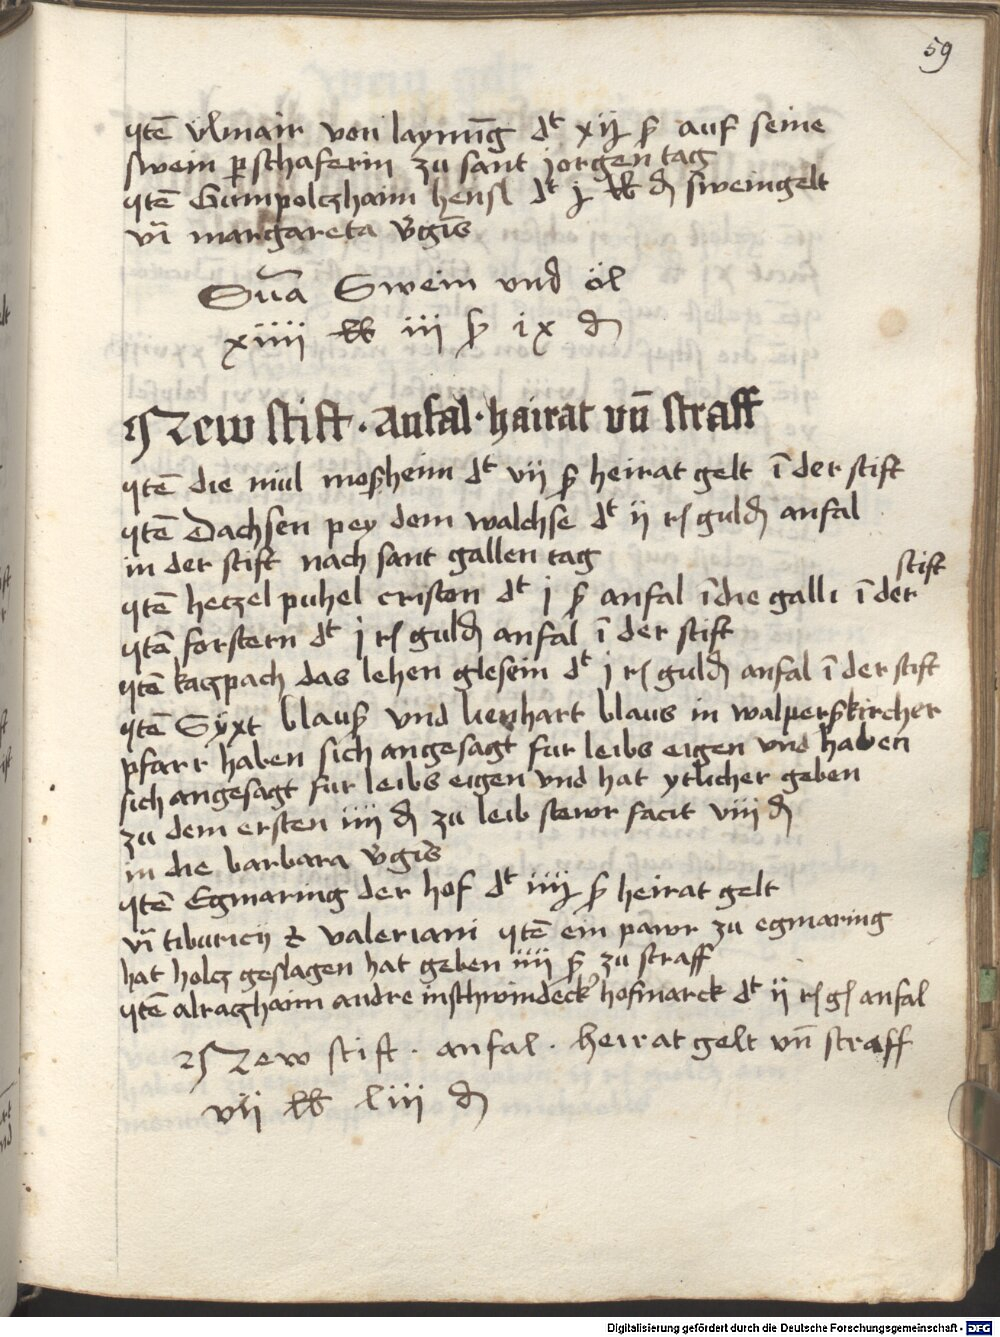 59
Itē ulmair von laymīg dt xij ß auf seine
swein p schaferin zu sant jorgen tag
Itē Gumpolczhaim hensl dt j lb d sweingelt
vī margareta v̄gīs
Sūa Swein und öl
xiiii lb iii ß ix d
New stift · anfal · hairat vn̄ straff
Itē die mul mosheim dt vij ß heirat gelt ī der stift
Itē Dachsen pey dem walchse dt ij rh guld anfal
in der stift nach sant gallen tag
Itē heczel puhel criston dt j ß anfal ī die galli ī der stift
Itē forstern dt j rh guld anfal ī der stift
Itē kaczpach das lehen glesein dt j rh guld anfal ī der stift
Itē Sÿxt blaus und lienhart blaus in walperskircher
pfarr haben sich angesagt fur leibs eigen vnd haben
sich angesagt fur leibs eigen vnd hat ytlicher geben
zu dem ersten iiij d zu leib stewr facit viii d
in die barbara v̄gīs
Itē Egmaring der hof dt iiij ß heirat gelt
vī tiburcij & valeriani Itē ein pawr zu egmaring
hat holcz geslagen hat geben iiij ß zu straff
Itē alraczhaim andre in schwindeck hofmarck dt ij rh gl anfal
New stift · anfal · heirat gelt vn̄ straff
vij lb liii d
Digitalisierung gefördert durch die Deutsche Forschungsgemeinschaft - DFG